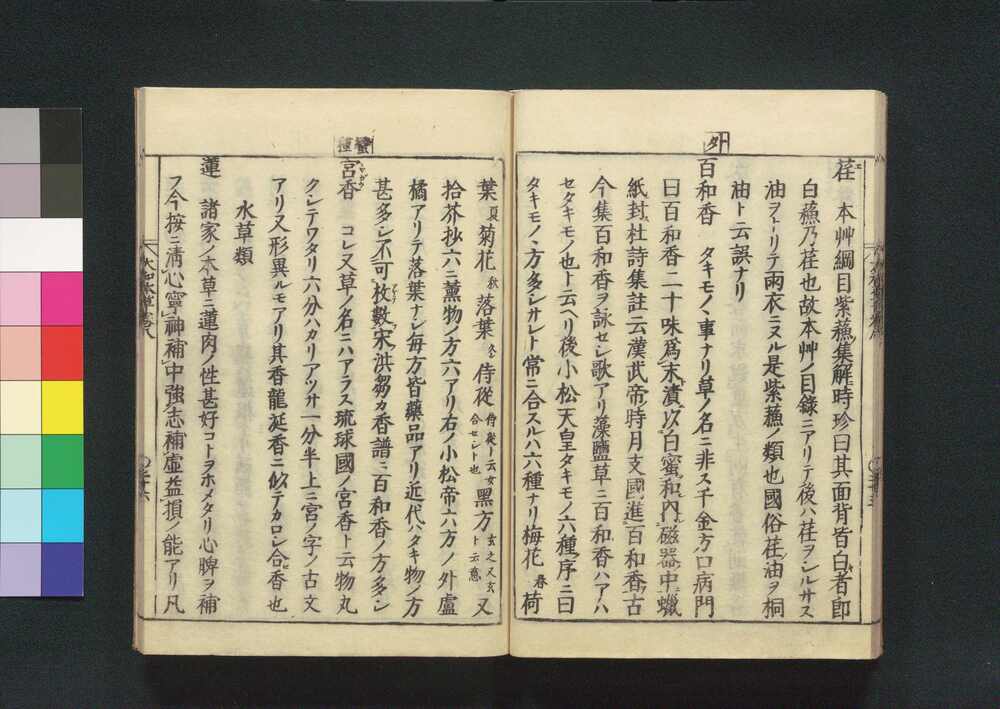 外
荏 本艸綱目紫蘓集解時珍曰其面背皆白者即
エ
白蘓乃荏也故本艸ノ目録ニアリテ後ハ荏ヲシルサス
油ヲトリテ雨衣ニヌル是紫蘓ノ類也國俗荏油ヲ桐
油ト云誤ナリ
百和香 タキモノヽ事ナリ草ノ名ニ非ス千金方口病門
曰百和香二十味爲末漬以白蜜和内磁器中蠟
紙封杜詩集註云漢武帝時月支國進百和香古
今集百和香ヲ詠セシ歌アリ藻鹽草ニ百和香ハアハ
セタキモノ也ト云ヘリ後小松天皇タキモノ六種ノ序ニ曰
タキモノヽ方多シサレト常ニ合スルハ六種ナリ梅花春荷
蠻種
葉夏菊花秋落葉冬侍從侍從ト云女合セシト也黑方玄之又玄ト云意又
拾芥抄六ニ薰物ノ方六アリ右ノ小松帝六方ノ外盧
橘アリテ落葉ナシ毎方皆藥品アリ近代ハタキ物ノ方
甚多シ不可枚數宋洪芻カ香譜ニ百和香ノ方多シ
宮香 コレ又草ノ名ニハアラス琉球國ノ宮香ト云物丸
クシテワタリ六分ハカリアツサ一分半上ニ宮ノ字ノ古文
アリ又形異ルモアリ其香龍涎香ニ似テカロシ合香也
水草類
蓮 諸家ノ本草ニ蓮肉ノ性甚好コトヲホメタリ心脾ヲ補
フ今按ニ清心寧神補中強志補虛益損ノ能アリ凡
大和本草卷八
三十六